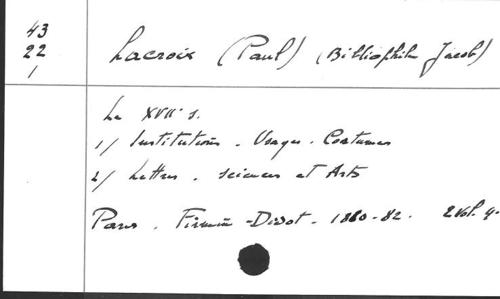 43
22
1
Lacroix (Paul) (Bibliophile Jacob)
Le XVIIe s.
1/ Institutions. Usages. Costumes
2/ Lettres. Sciences et Arts
Paris. Firmin-Didot. 1880-82. 2 Vol. 4-